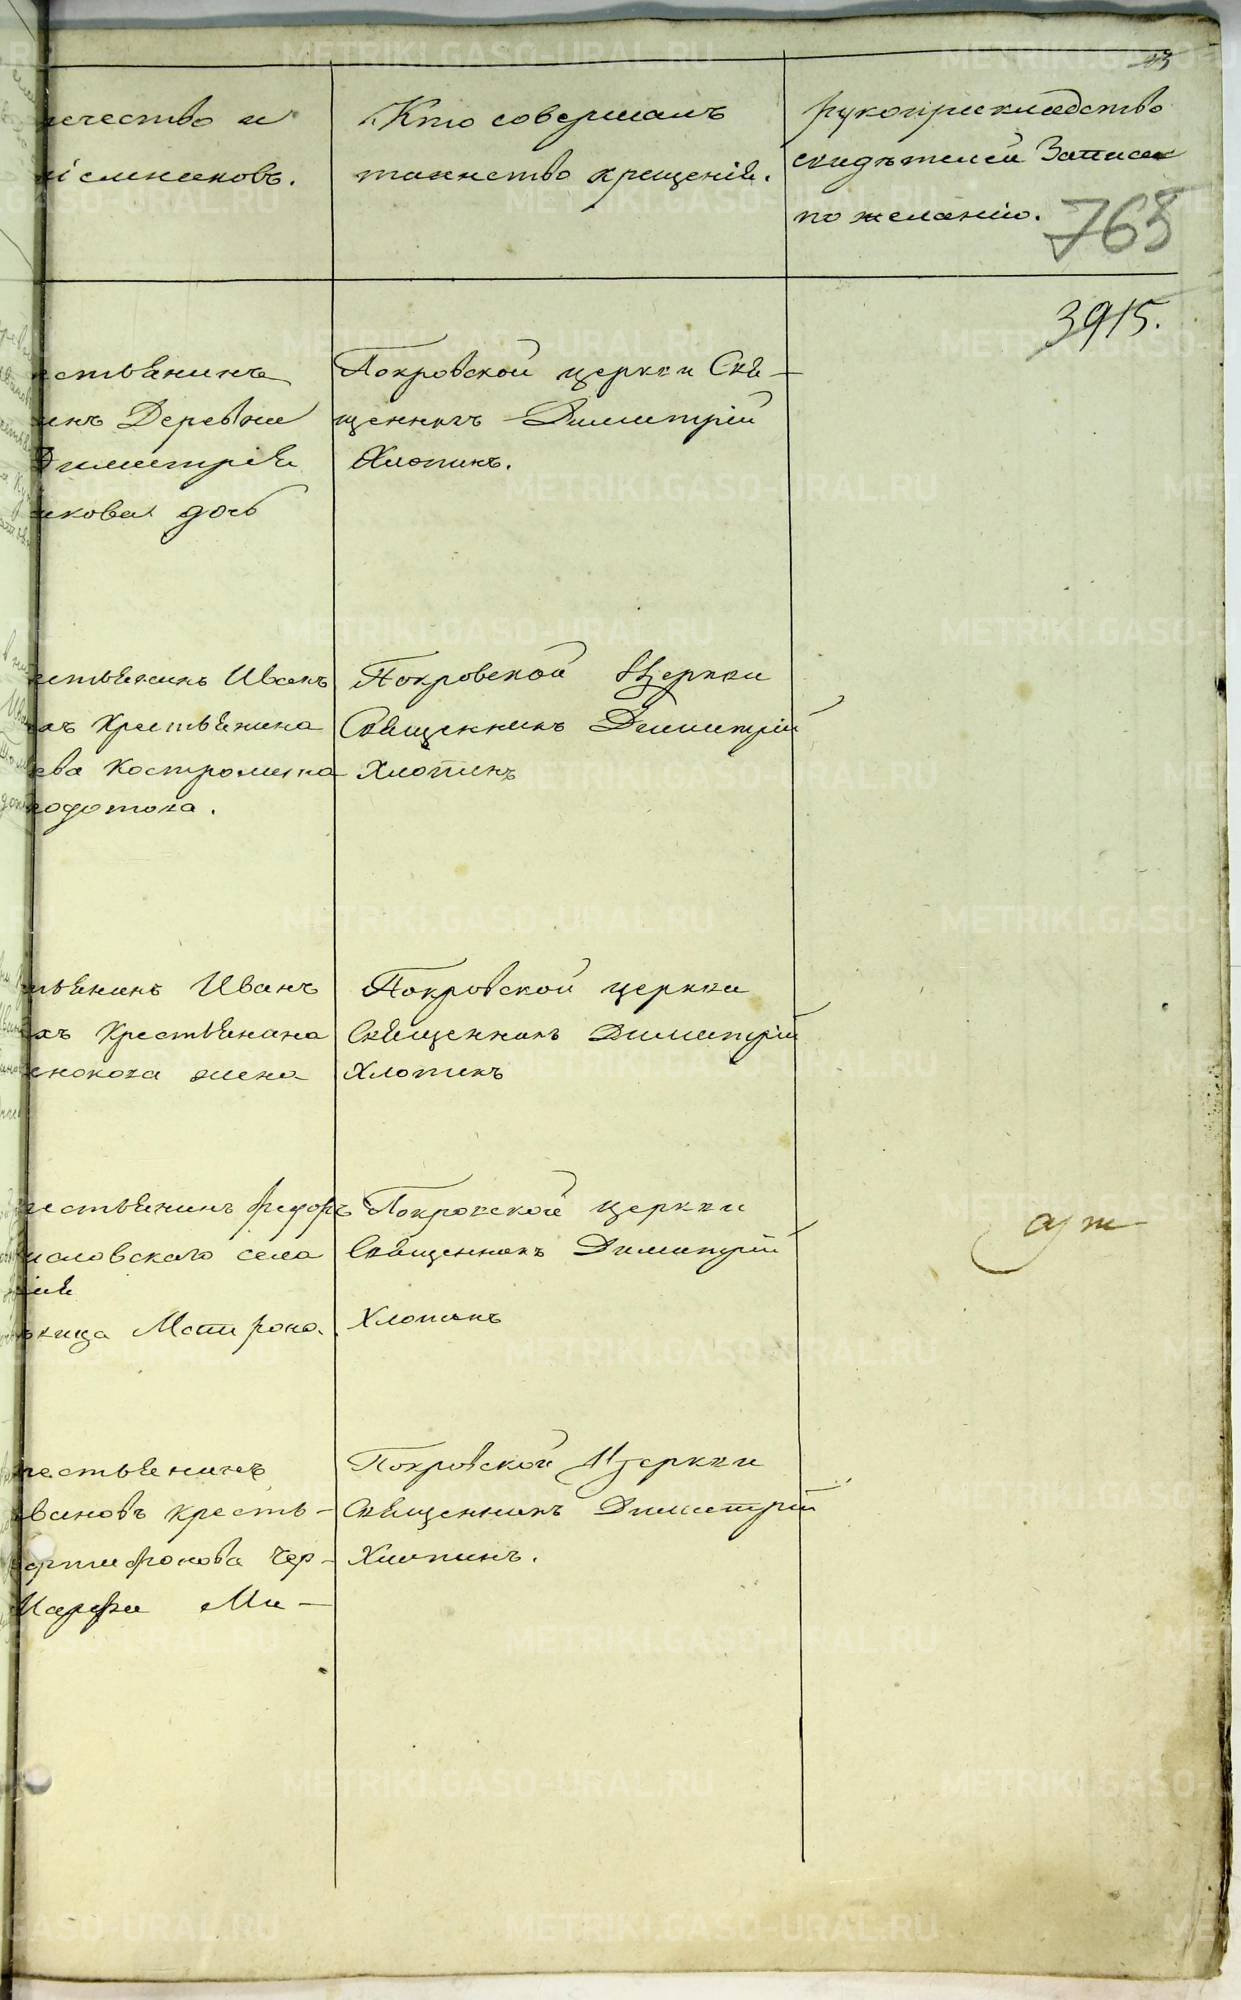 33
ичество и
ріемниковъ.
Кто совершалъ
таинство крещенія.
рукоприкладство
свидѣтелей Записи
по желанію.
763
3915.
естьянинъ
инъ Деревни
Димитрія
икова дочь
Покровской церкви Свя-
щенникъ Димитрій
Хлопинъ.
естьянинъ Иванъ
въ Крестьянина
ева Костромина
Покровской Церкви
Священникъ Димитрій
Хлопинъ
тьянинъ Иванъ
въ Крестьянина
жена
Покровской церкви
Священникъ Димитрій
Хлопинъ
рестьянинъ Федоръ
исловскаго села
ія
Матрона.
Покровской церкви
Священникъ Димитрій
Хлопинъ
рестьянинъ
вановъ Кресть-
Чер-
Марфа Ми-
Покровской Церкви
Священникъ Димитрій
Хлопинъ.
METRIKI.GASO-URAL.RU